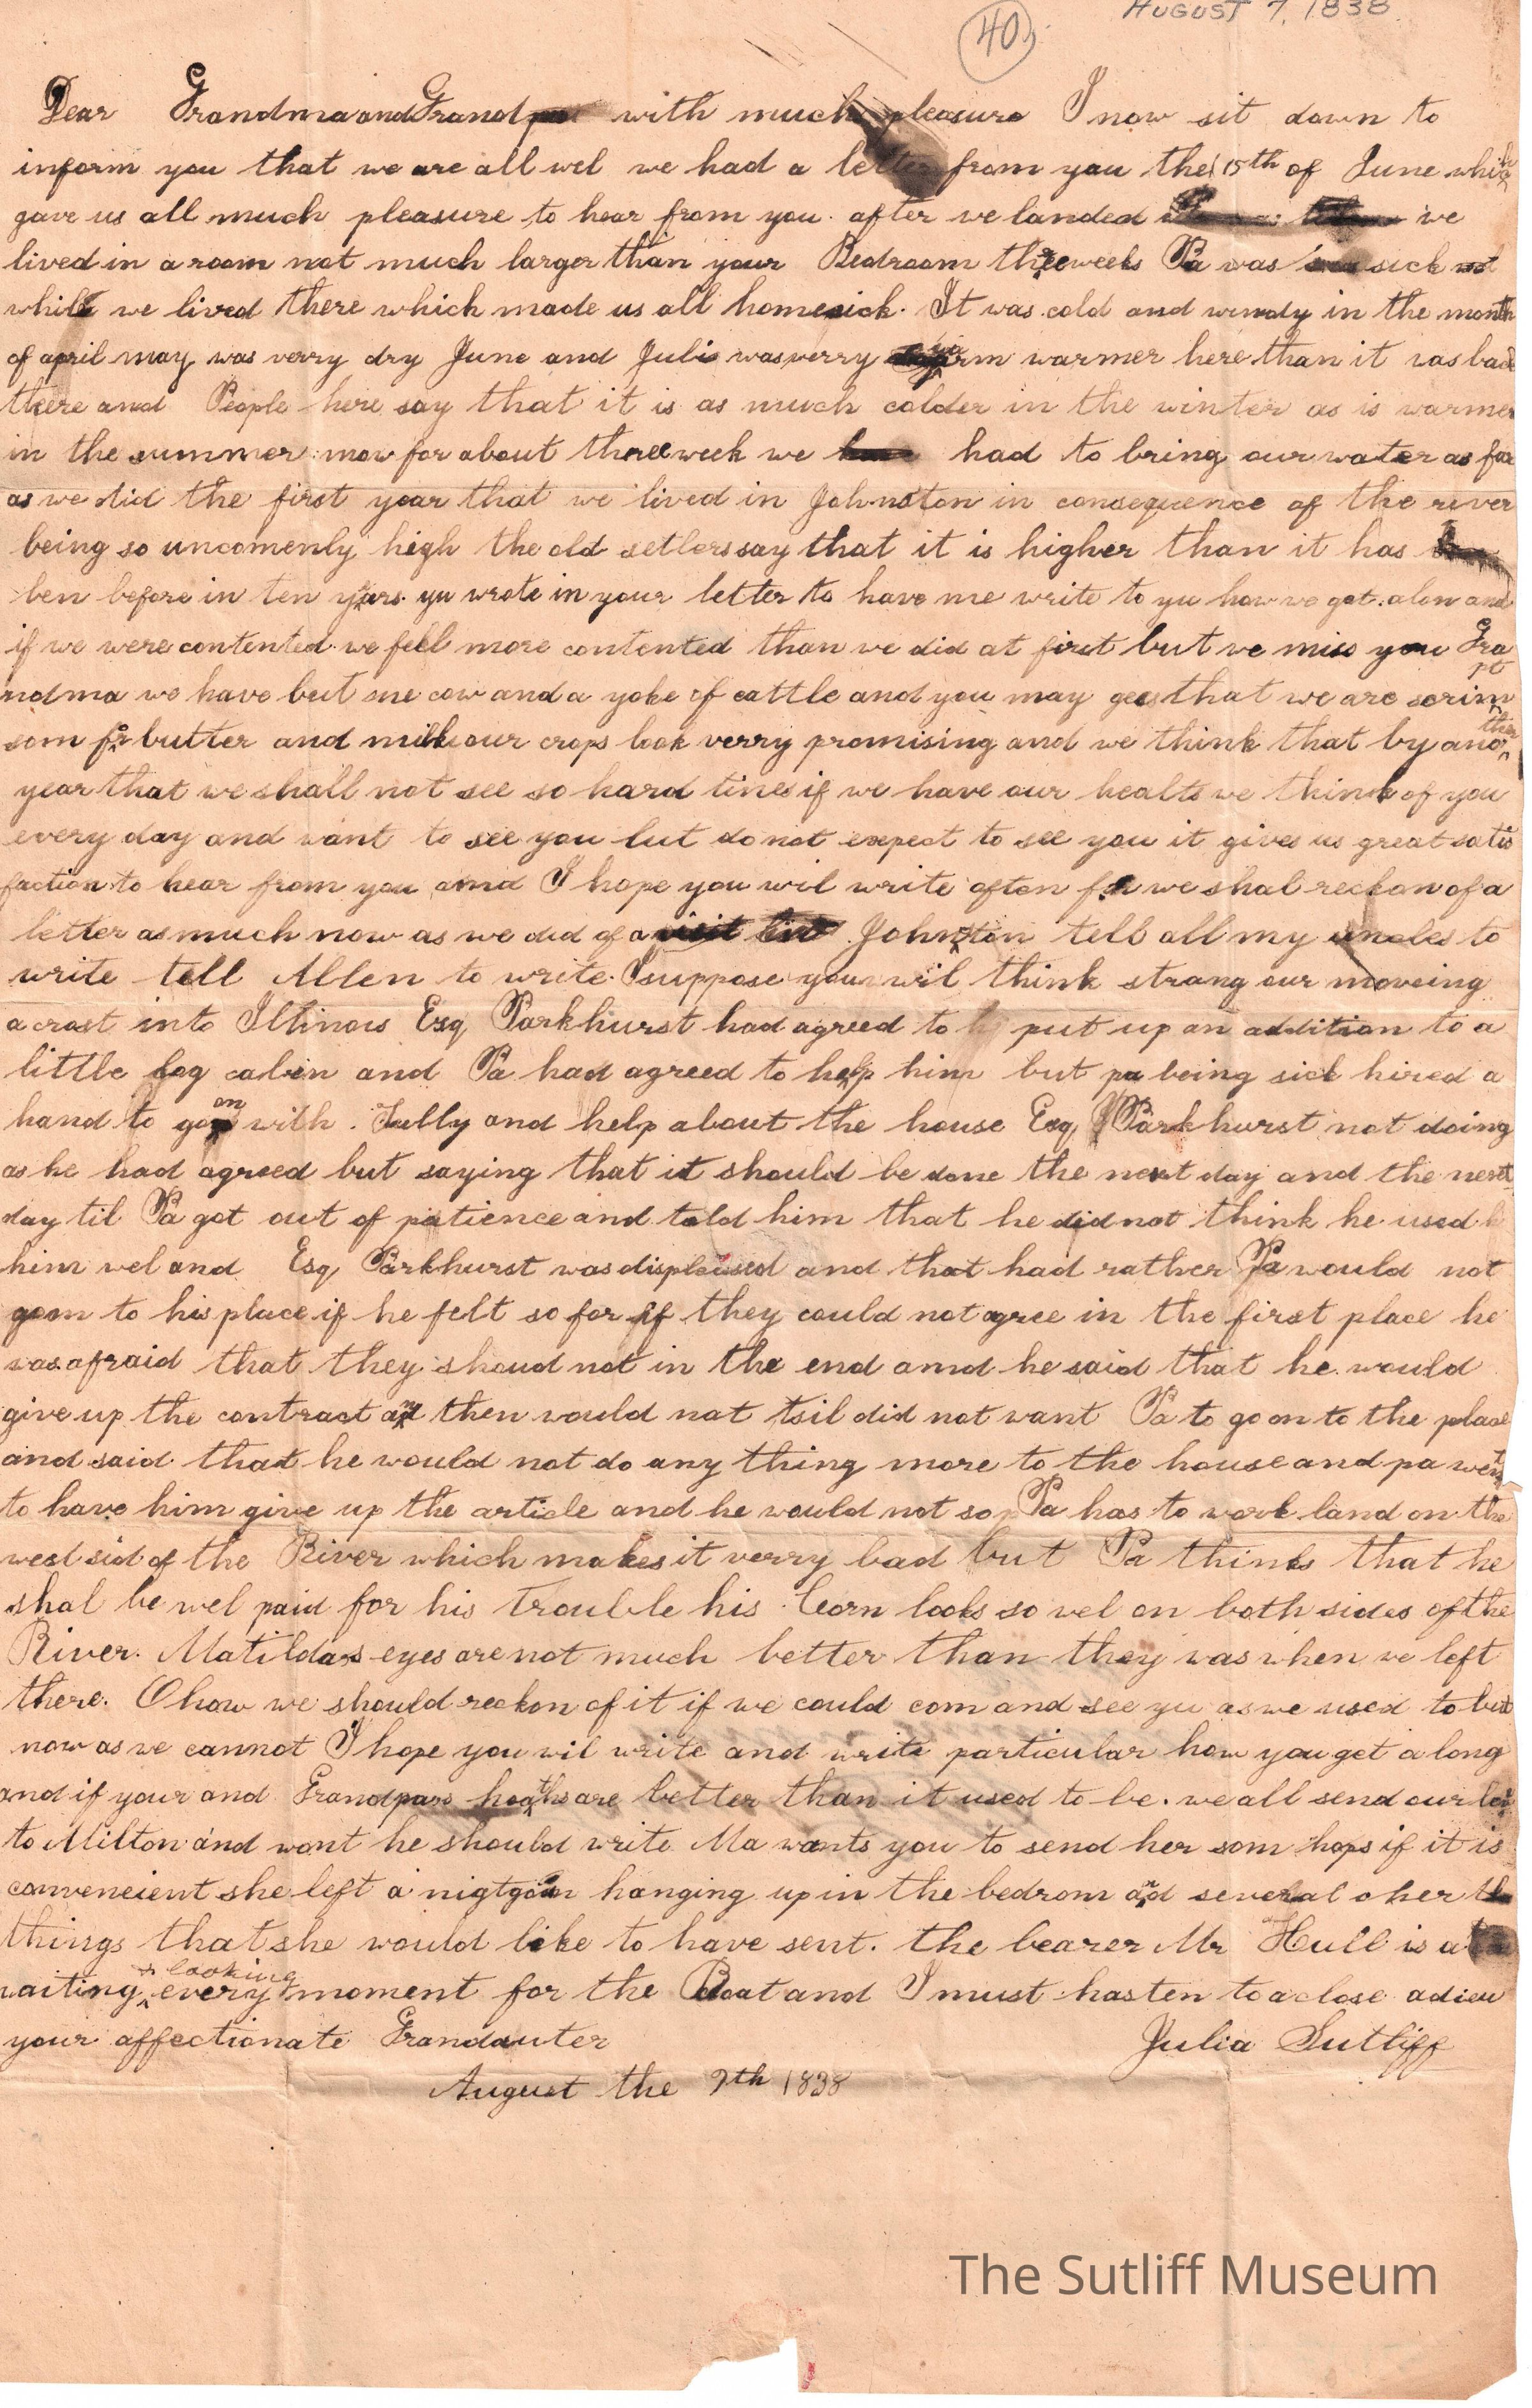 AUGUST 7, 1838
40
Dear Grandma and Grandpa with much pleasure I now sit down to
inform you that we are all wel we had a letter from you the 15th of June which
gave us all much pleasure to hear from you. after we landed we
lived in a room not much larger than your Bedroom three weeks Pa was sick
while we lived there which made us all homesick. It was cold and windy in the month
of april may was verry dry June and Juli was verry warm warmer here than it was back
there and People here say that it is as much colder in the winter as is warmer
in the summer now for about three week we had to bring our water as far
as we did the first year that we lived in Johnston in consequence of the river
being so uncomenly high the old setlers say that it is higher than it has
ben before in ten years. yu wrote in your letter to have me write to yu how we got alon and
if we were contented. we feel more contented than we did at first but we miss you Gra
ndma we have but one cow and a yoke of cattle and you may gess that we are scrimpt
som for butter and milk our crops look verry promising and we think that by another
year that we shall not see so hard times if we have our health we think of you
every day and want to see you but do not expect to see you it gives us great satis
faction to hear from you and I hope you wil write often for we shal reckon of a
letter as much now as we did of a visit in Johnston tell all my uncles to
write tell Allen to write. I suppose you wil think strang our moveing
acrost into Illinois Esq Parkhurst had agreed to put up an addition to a
little log cabin and Pa had agreed to help him but pa being sick hired a
hand to go on with Tully and help about the house Esq Parkhurst not doing
as he had agreed but saying that it should be done the next day and the next
day til Pa got out of patience and told him that he did not think he used
him wel and Esq Parkhurst was displeased and that had rather Pa would not
go on to his place if he felt so for if they could not agree in the first place he
was afraid that they shoud not in the end and he said that he would
give up the contract and then would not did not want Pa to go on to the place
and said that he would not do any thing more to the house and pa went
to have him give up the article and he would not so Pa has to work land on the
west sid of the River which makes it verry bad but Pa thinks that he
shal be wel paid for his trouble his Corn looks so wel on both sides of the
River. Matildas eyes are not much better than they was when we left
there. O how we should reckon of it if we could com and see yu as we used to but
now as we cannot I hope you wil write and write particular how you get a long
and if your and Grandpars heaths are better than it used to be. we all send our
to Milton and wont he should write Ma wants you to send her som hops if it is
conveneient she left a nigtgown hanging up in the bedrom and several oher
things that she would like to have sent. the bearer Mr Hull is a
waiting & looking every moment for the Boat and I must hasten to a close adieu
your affectionate Grandauter Julia Sutliff
August the 7th 1838
The Sutliff Museum